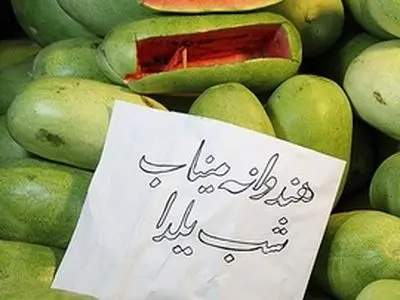 هندوانه میناب
شب یلدا